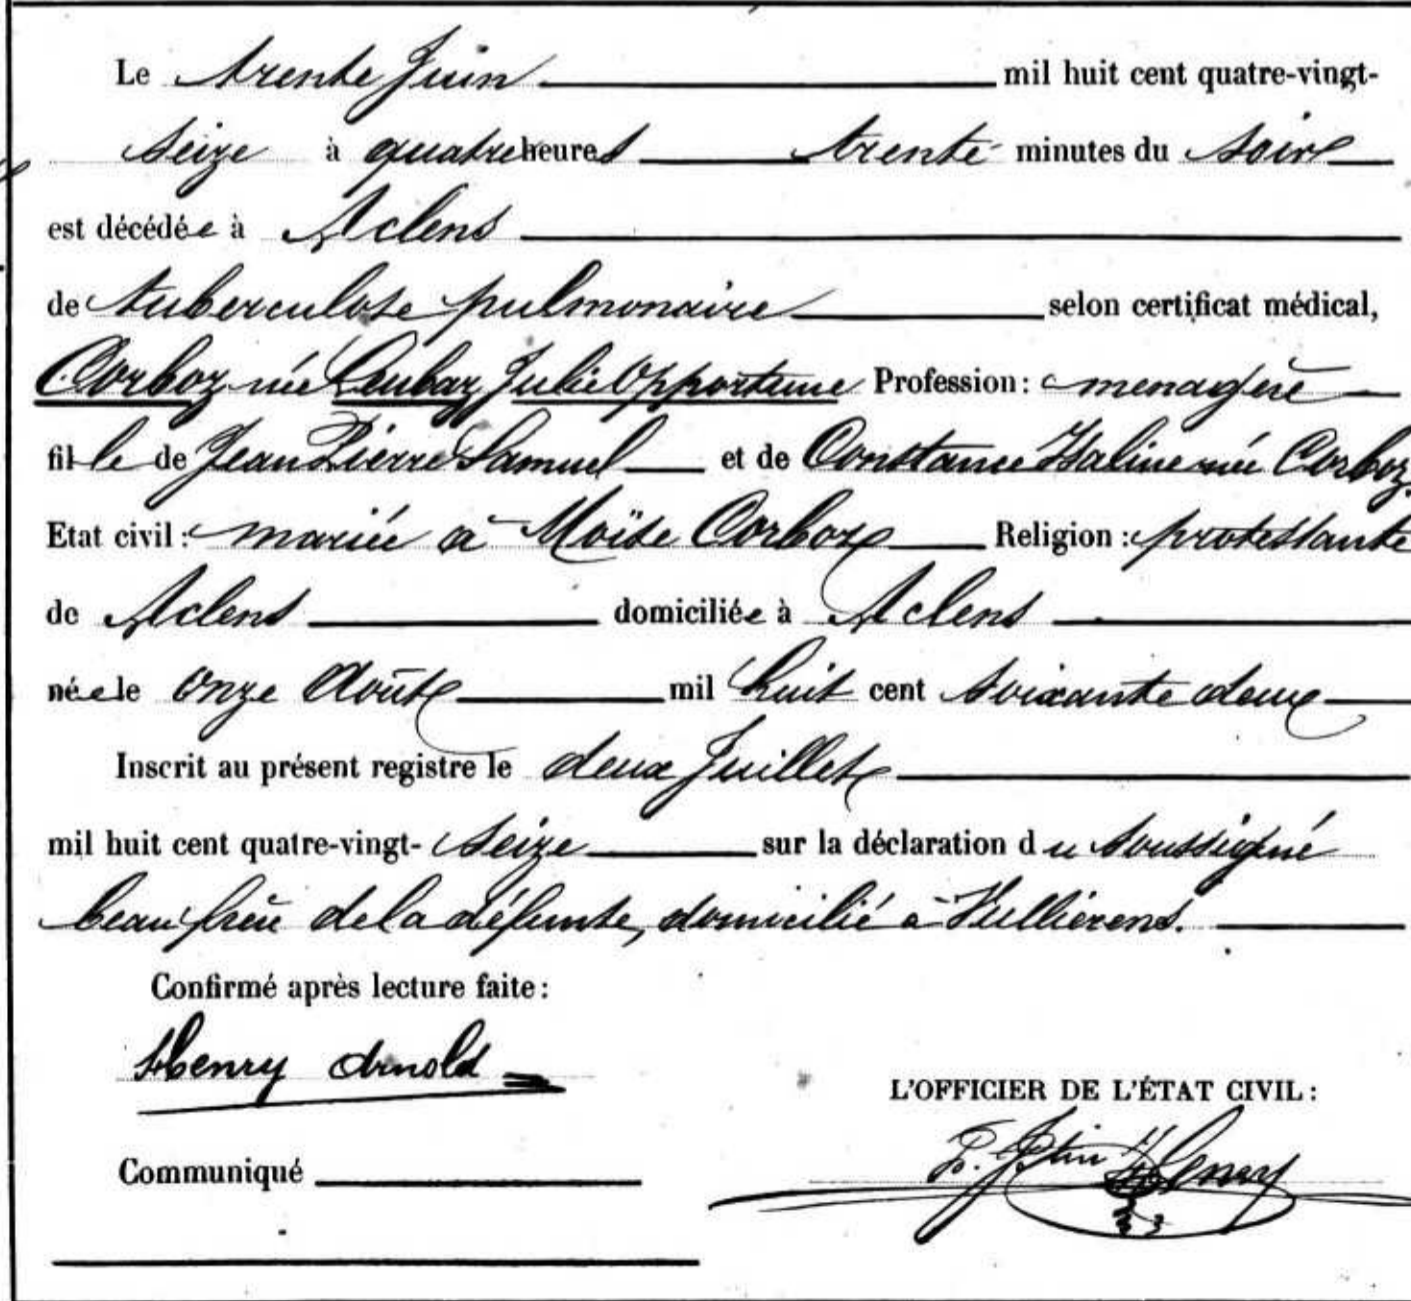 Le trente Juin mil huit cent quatre-vingt-
seize à quatre heures trente minutes du soir
est décédée à Aclens
de tuberculose pulmonaire selon certificat médical,
Corboz née Leubaz Julie Opportune Profession: menagère
fille de Jean Pierre Samuel et de Constance Isaline née Corboz.
Etat civil: mariée à Moïse Corboz Religion: protestante
de Aclens domiciliée à Aclens
née le onze Août mil huit cent soixante deux
Inscrit au présent registre le deux Juillet
mil huit cent quatre-vingt-seize sur la déclaration du soussigné
beau frère de la défunte, domicilié à Vullierens.
Confirmé après lecture faite:
Henry Arnold
L'OFFICIER DE L'ÉTAT CIVIL:
Henry
Communiqué